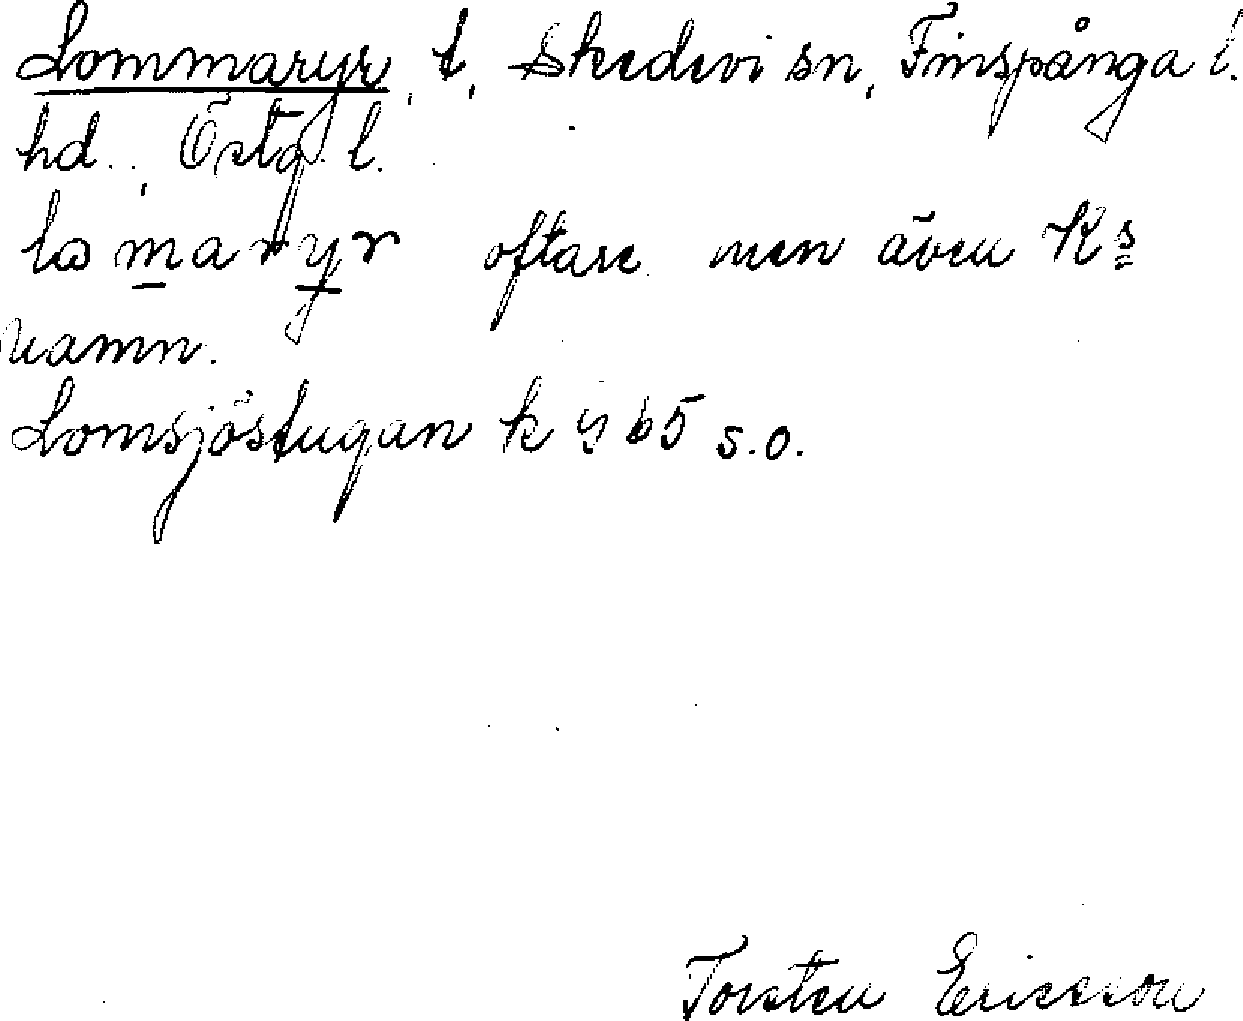 Lommaryr, t, Skedevi sn, Finspånga l.
hd., Östg. l.
lomaryr oftare men även Ks
namn.
Lomsjöstugan k § 65 s.o.
Torsten Ericsson